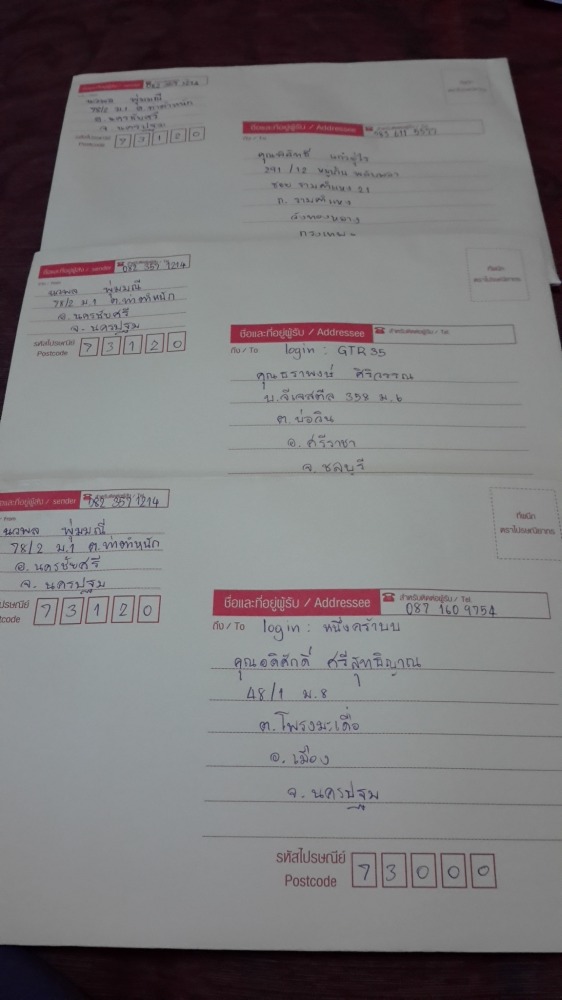 ชื่อและที่อยู่ผู้ฝาก / sender
นวพล พุ่มมณี
78/2 ม.1 ต.ท่าตำหนัก
อ.นครชัยศรี
จ.นครปฐม
รหัสไปรษณีย์
Postcode 73120
ที่ผนึก
ตราไปรษณียากร
ชื่อและที่อยู่ผู้รับ / Addressee
ถึง / To
291/12
ซอย รามคำแหง 21
ถ. รามคำแหง
วังทองหลาง
กรุงเทพฯ
ชื่อและที่อยู่ผู้ฝาก / sender 082 359 1214
นวพล พุ่มมณี
78/2 ม.1 ต.ท่าตำหนัก
อ.นครชัยศรี
จ.นครปฐม
รหัสไปรษณีย์
Postcode 73120
ที่ผนึก
ตราไปรษณียากร
ชื่อและที่อยู่ผู้รับ / Addressee สำหรับติดต่อผู้รับ / Tel.
ถึง / To login : GTR35
คุณธราพงษ์ ศิริวรรณ
บ.จีเจสตีล 358 ม.6
ต.บ่อวิน
อ.ศรีราชา
จ.ชลบุรี
และที่อยู่ผู้ฝาก / sender 082 359 1214
from
นวพล พุ่มมณี
78/2 ม.1 ต.ท่าตำหนัก
อ.นครชัยศรี
จ.นครปฐม
ปรษณีย์
tcode 73120
ที่ผนึก
ตราไปรษณียากร
ชื่อและที่อยู่ผู้รับ / Addressee สำหรับติดต่อผู้รับ / Tel.
087 160 9754
ถึง / To login : หนึ่งคร้าบบ
คุณอดิศักดิ์ ศรีสุทธิญาณ
48/1 ม.8
ต.โพรงมะเดื่อ
อ.เมือง
จ.นครปฐม
รหัสไปรษณีย์
Postcode 73000